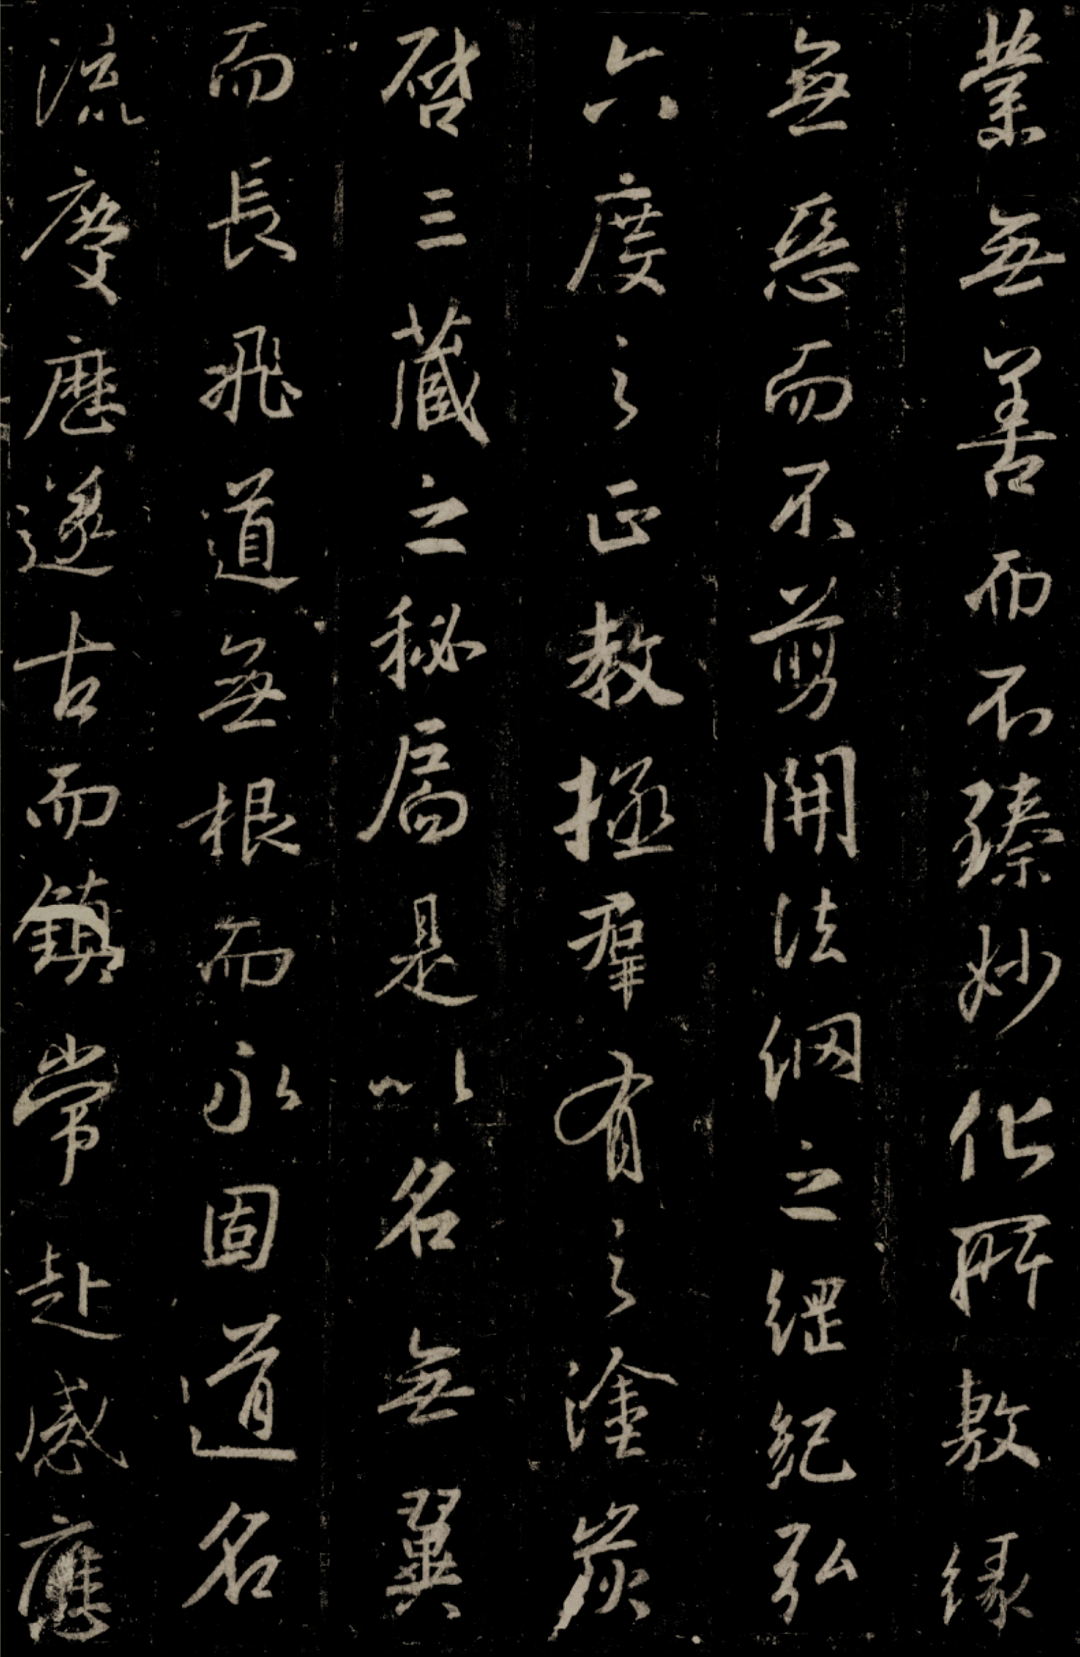 業無善而不臻妙化所敷緣
無惡而不剪開法網之綱紀弘
六度之正教拯群有之塗炭
啓三藏之秘扃是以名無翼
而長飛道無根而永固道名
流慶歷遂古而鎮常赴感應